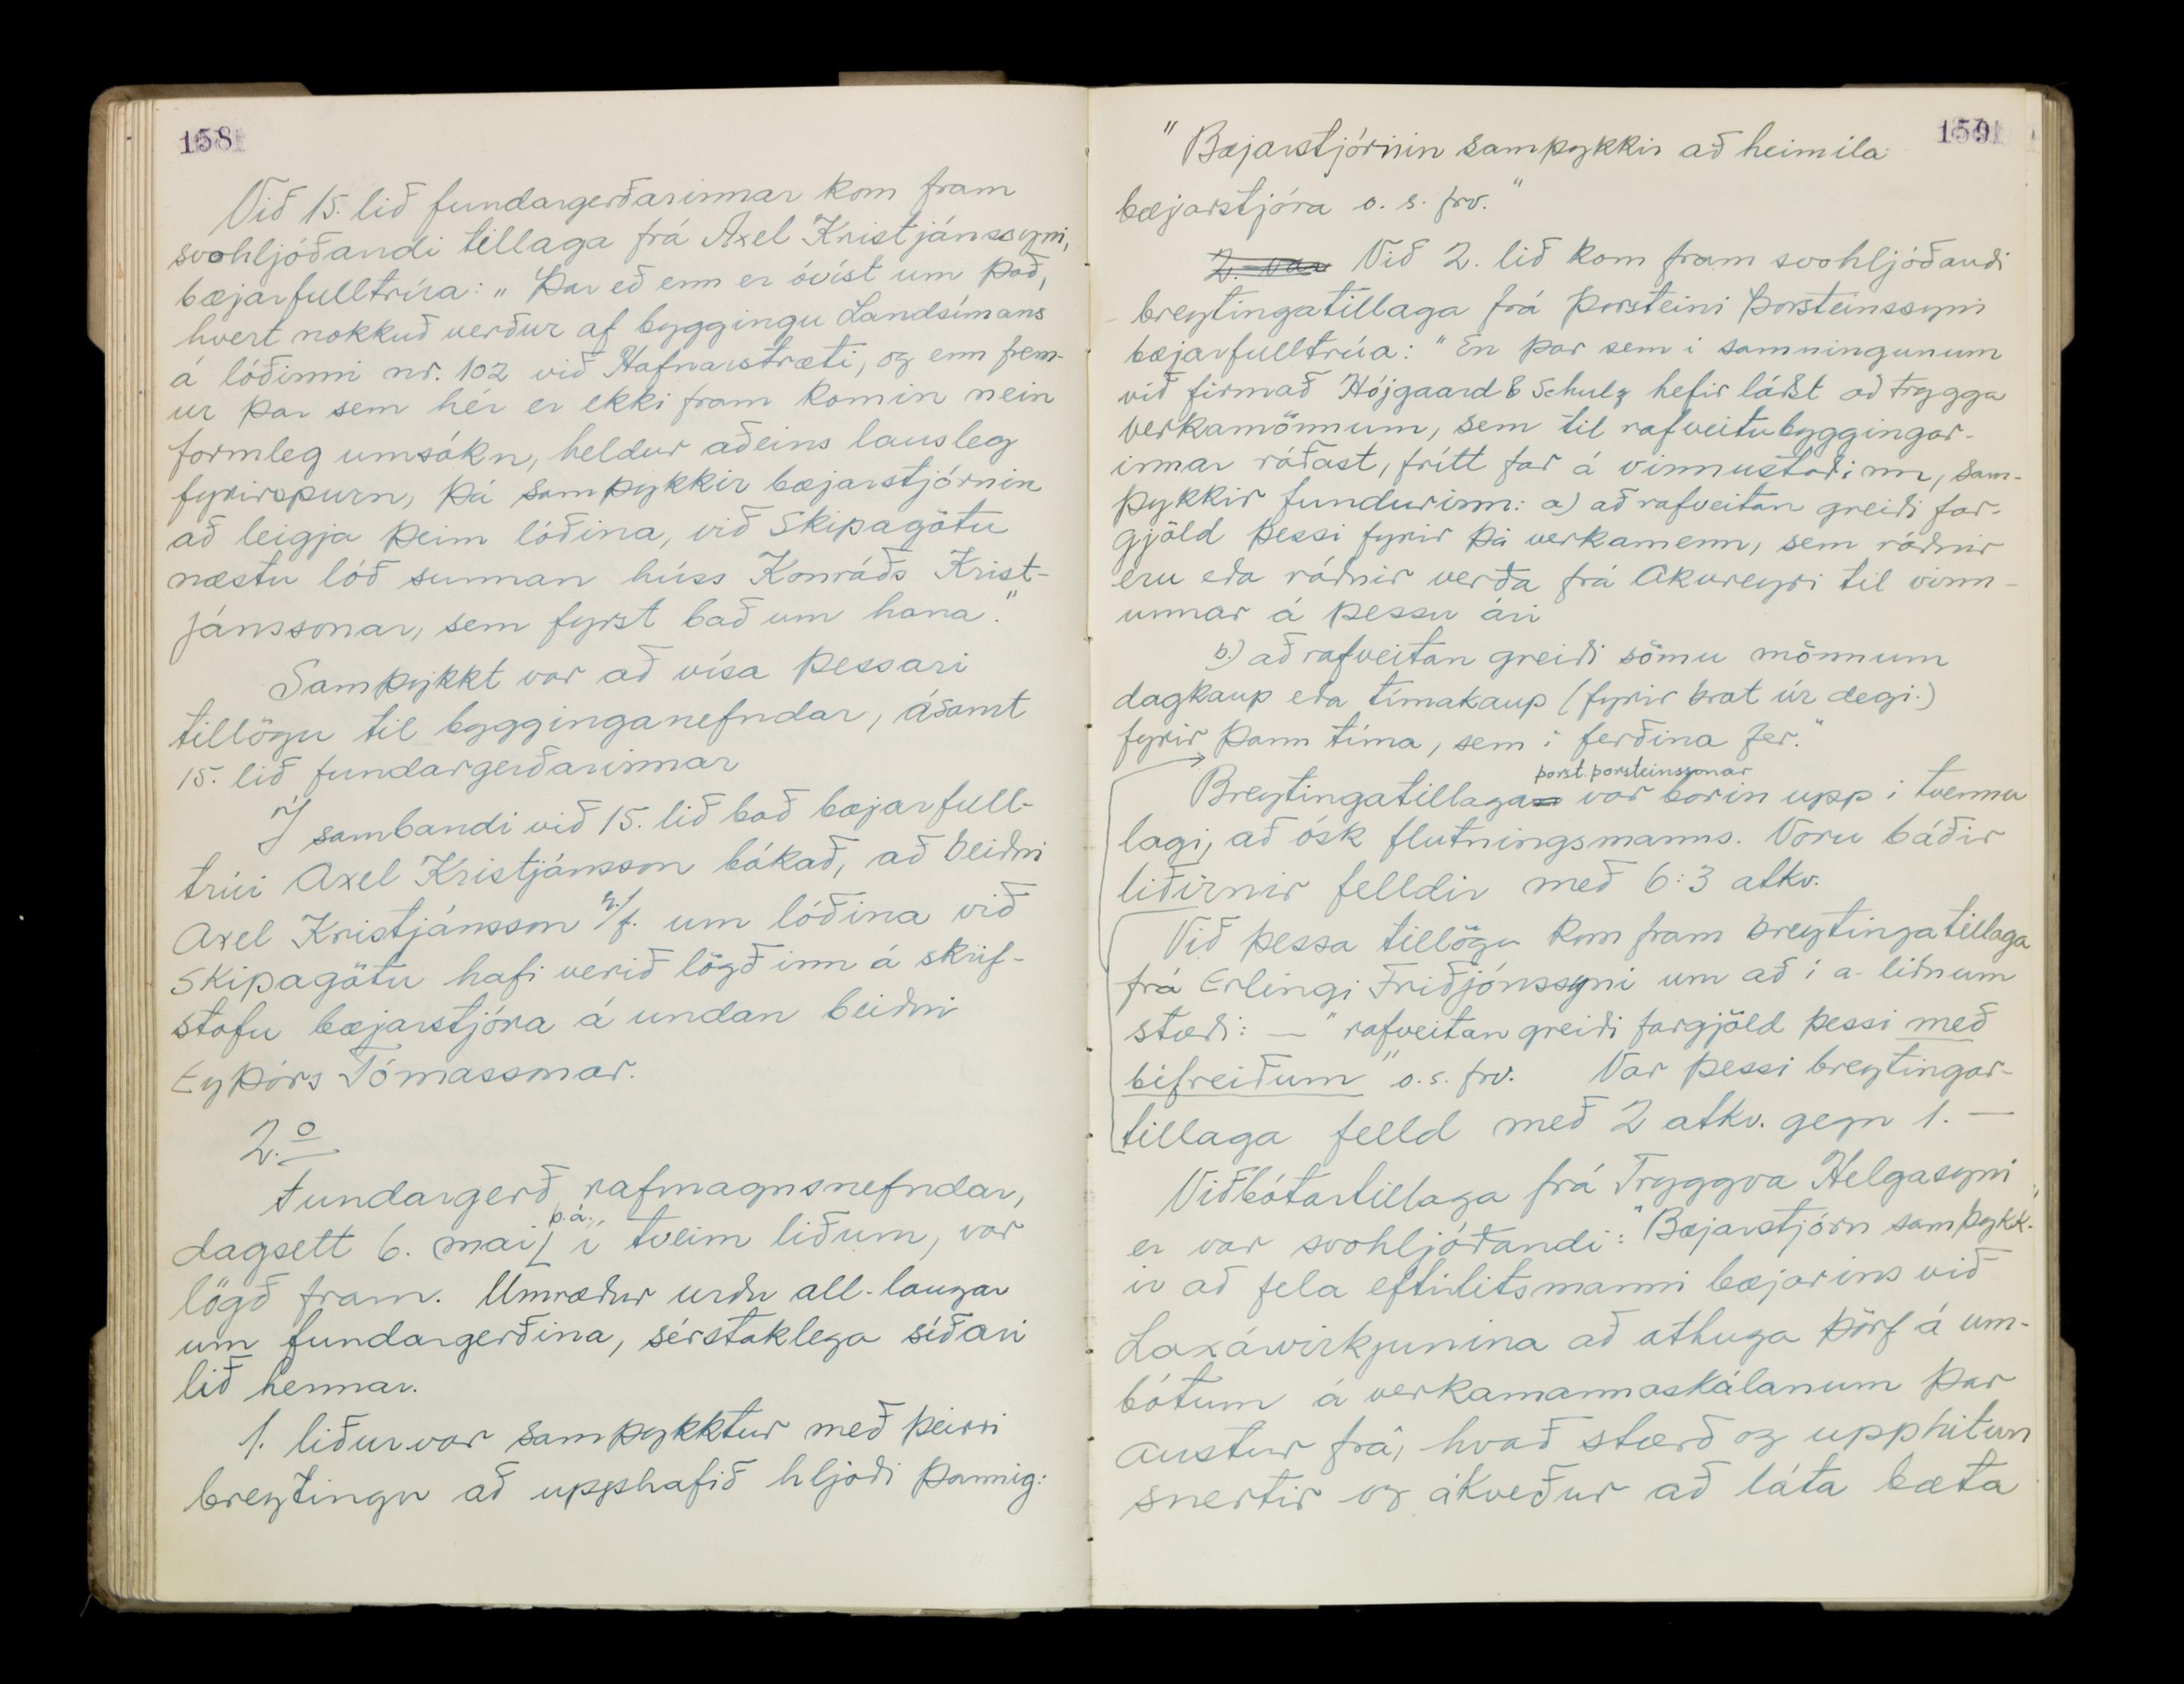 158
Við 15. lið fundargerðarinnar kom fram
svohljóðandi tillaga frá Axel Kristjánssyni,
bæjarfulltrúa: „Þar eð enn er óvíst um það,
hvert nokkuð verður af byggingu Landsímans
á lóðinni nr. 102 við Hafnarstræti, og enn frem-
ur þar sem hér er ekki fram komin nein
formleg umsókn, heldur aðeins lausleg
fyrirspurn, þá samþykkir bæjarstjórnin
að leigja þeim lóðina, við Skipagötu
næstu lóð sunnan húss Konráðs Krist-
jánssonar, sem fyrst bað um hana."
Samþykkt var að vísa þessari
tillögu til bygginganefndar, ásamt
15. lið fundargerðarinnar
Í sambandi við 15. lið bað bæjarfull-
trúi Axel Kristjánsson bókað, að beiðni
Axel Kristjánsson h/f. um lóðina við
Skipagötu hafi verið lögð inn á skrif-
stofu bæjarstjóra á undan beiðni
Eyþórs Tómassonar.
2.o
Fundargerð rafmagnsnefndar,
dagsett 6. maí þ.á. í tveim liðum, var
lögð fram. Umræður urðu all-langar
um fundargerðina, sérstaklega síðari
lið hennar.
1. liður var samþykktur með þeirri
breytingu að upphafið hljóði þannig:
159
"Bæjarstjórnin samþykkir að heimila
bæjarstjóra o. s. frv."
2. var Við 2. lið kom fram svohljóðandi
breytingatillaga frá Þorsteini Þorsteinssyni
bæjarfulltrúa: "En þar sem í samningunum
við firmað Höjgaard & Schulz hefir láðst að tryggja
verkamönnum, sem til rafveitubyggingar-
innar ráðast, frítt far á vinnustaðinn, sam-
þykkir fundurinn: a) að rafveitan greiði far-
gjöld þessi fyrir þá verkamenn, sem ráðnir
eru eða ráðnir verða frá Akureyri til vinn-
unnar á þessu ári
b.) að rafveitan greiði sömu mönnum
dagkaup eða tímakaup (fyrir brot úr degi.)
fyrir þann tíma, sem í ferðina fer."
Þorst. Þorsteinssonar
Breytingatillaga var borin upp í tvennu
lagi, að ósk flutningsmanns. Voru báðir
liðirnir felldir með 6:3 atkv.
Við þessa tillögu kom fram breytingatillaga
frá Erlingi Friðjónssyni um að í a-liðnum
stæði: — "rafveitan greiði fargjöld þessi með
bifreiðum" o.s. frv. Var þessi breytingar-
tillaga felld með 2 atkv. gegn 1. —
Viðbótartillaga frá Tryggva Helgasyni
er var svohljóðandi: "Bæjarstjórn samþykk-
ir að fela eftirlitsmanni bæjarins við
Laxárvirkjunina að athuga þörf á um-
bótum á verkamannaskálanum þar
austur frá, hvað stærð og upphitun
snertir og ákveður að láta bæta